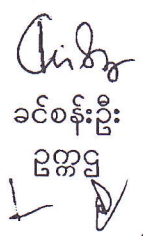 ခင်စန်းဦး
ဥက္ကဌ